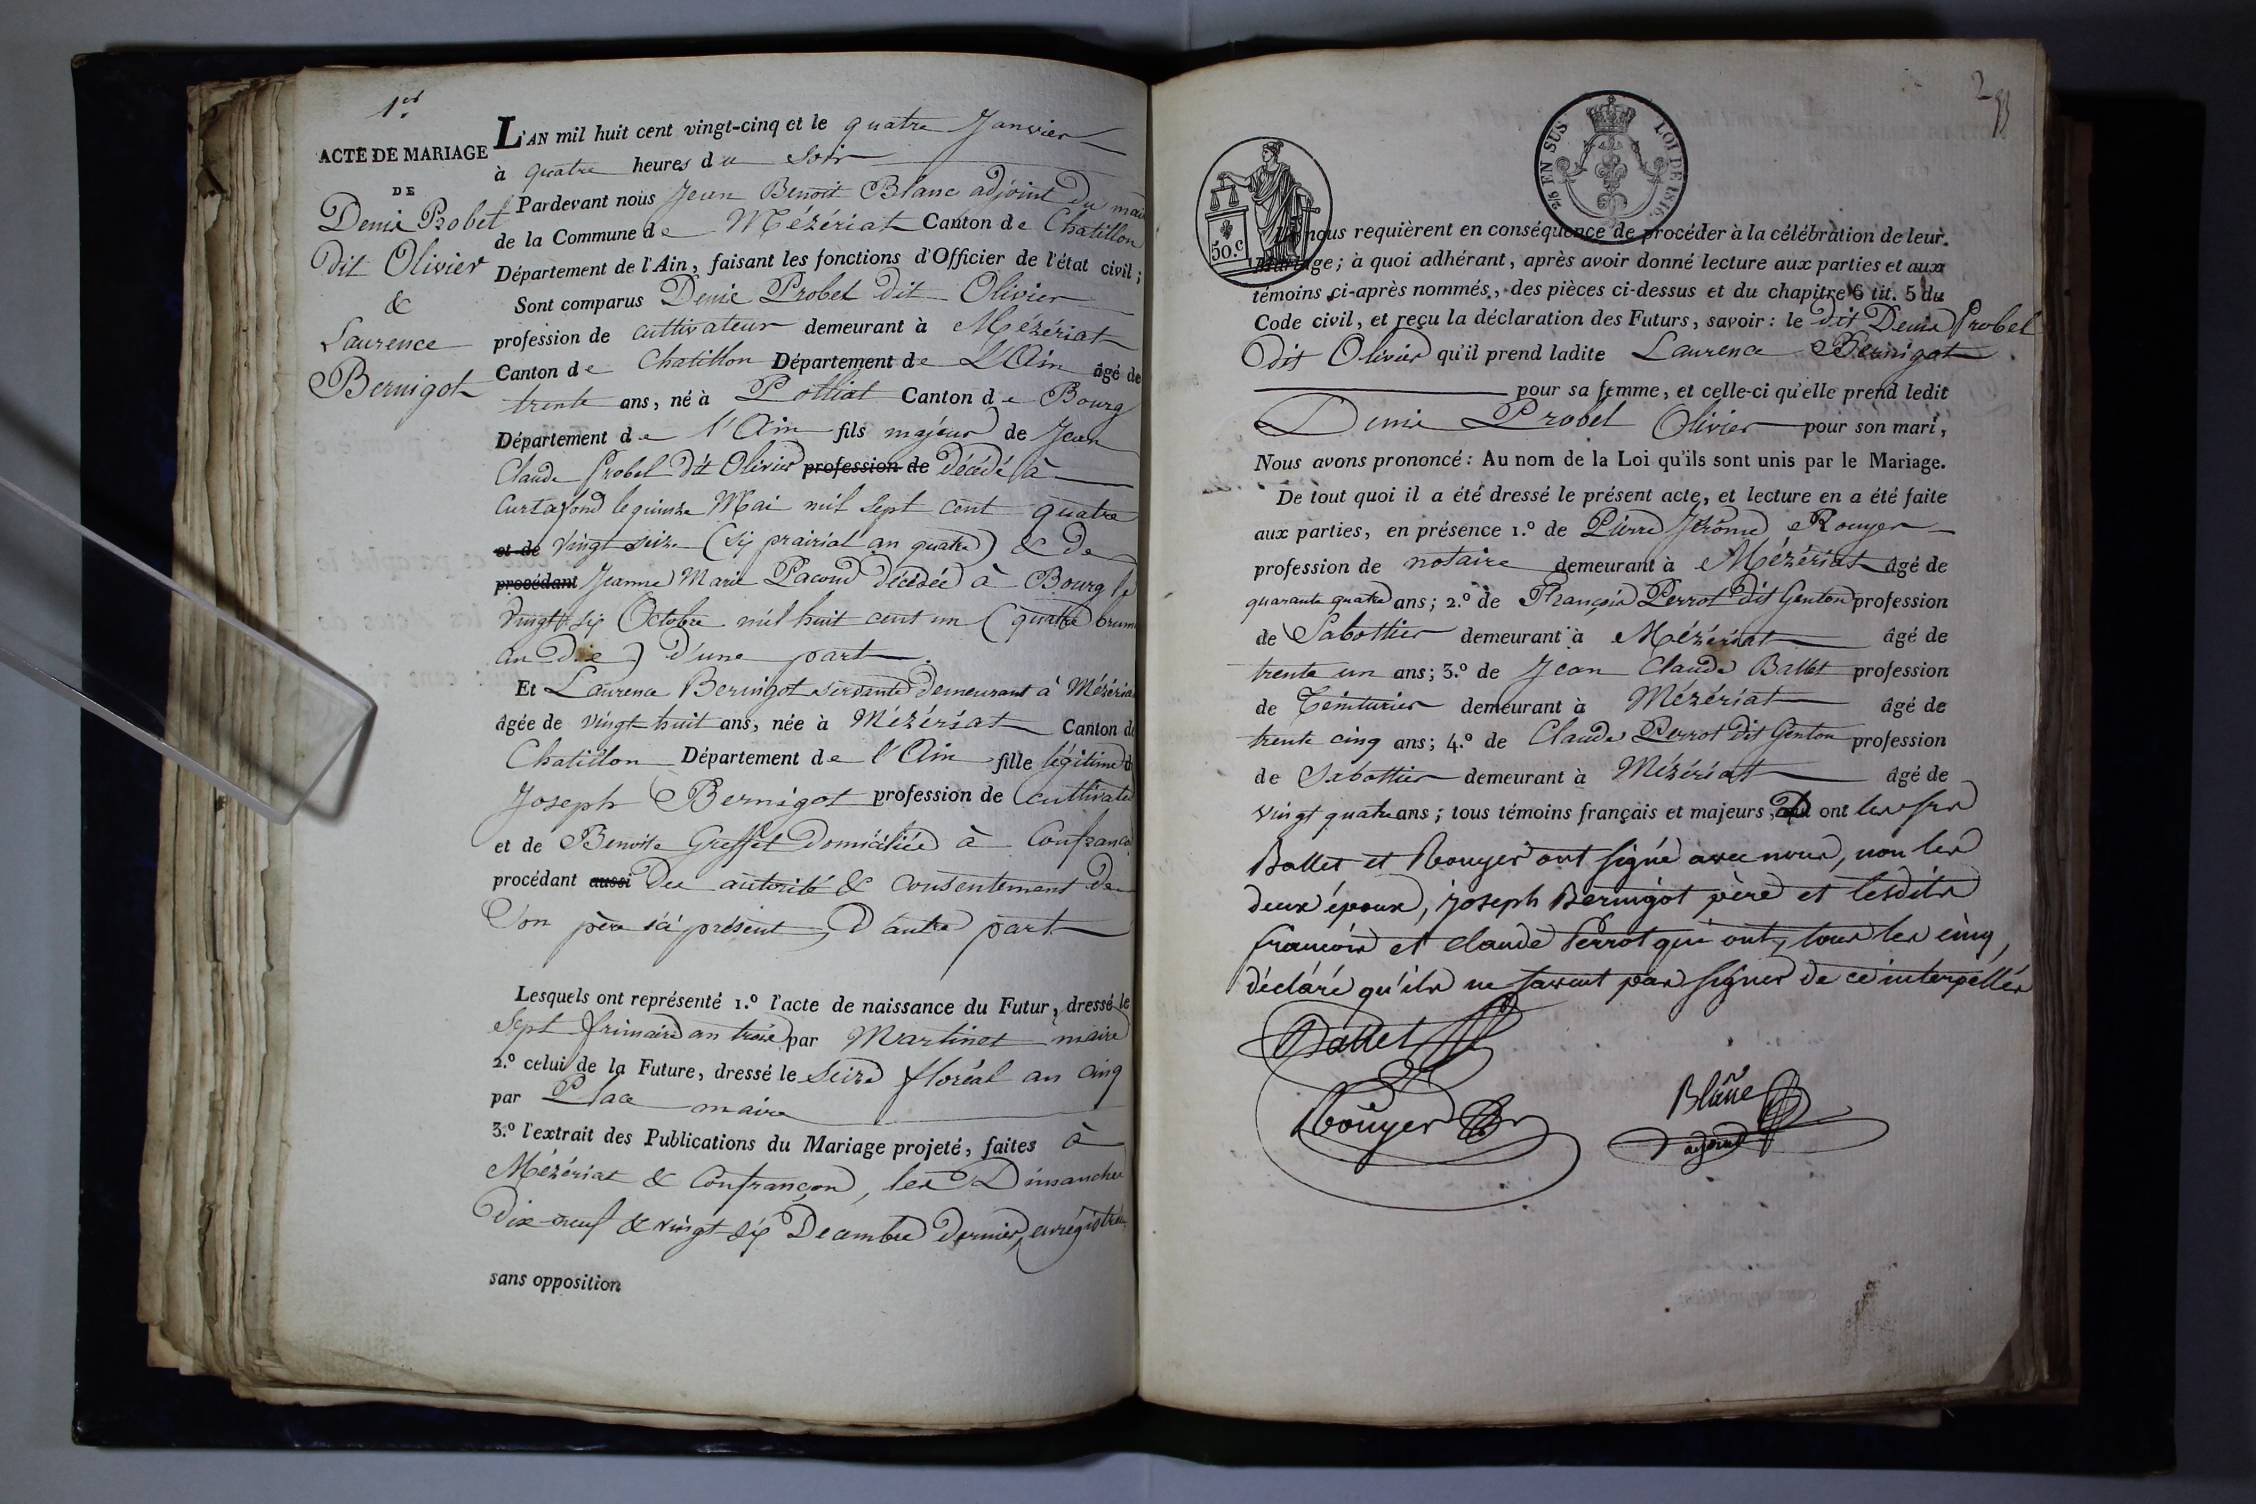 1er
ACTE DE MARIAGE
DE
Denis Probel
dit Olivier
&
Laurence
Bernigot
L'AN mil huit cent vingt-cinq et le quatre Janvier
à quatre heures du Soir
Pardevant nous Jean Benoit Blanc adjoint du maire
de la Commune de Mézériat Canton de Chatillon
Département de l'Ain, faisant les fonctions d'Officier de l'état civil;
Sont comparus Denis Probel dit Olivier
profession de cultivateur demeurant à Mézériat
Canton de Chatillon Département de L'Ain âgé de
trente ans, né à Polliat Canton de Bourg
Département de l'Ain fils majeur de Jean
Claude Probel dit Olivier profession de décédé à
Curtafond le quinze Mai mil sept cent quatre
et de vingt seize (six prairial an quatre) & de
procédant Jeanne Marie Pacoud décédée à Bourg le
vingt six Octobre mil huit cent un (quatre brum
an Dix) d'une part
Et Laurence Bernigot servante demeurant à Mézériat
âgée de vingt huit ans, née à Mézériat Canton de
Chatillon Département de l'Ain fille légitime de
Joseph Bernigot profession de cultivate
et de Benoite Greffet domiciliée à Confranço
procédant aussi des autorité & consentement de
Son père ici présent, d'autre part
Lesquels ont représenté 1.º l'acte de naissance du Futur, dressé le
Sept frimaire an trois par Martinet maire
2.º celui de la Future, dressé le Seize floréal an cinq
par Place maire
3.º l'extrait des Publications du Mariage projeté, faites à
Mézériat & Confrançon, les Dimanches
Dix-neuf & vingt-six Décembre dernier, enregistrés
sans opposition
2
50 c
2/6 EN SUS LOI DE 1816.
nous requièrent en conséquence de procéder à la célébration de leur
Mariage; à quoi adhérant, après avoir donné lecture aux parties et aux
témoins ci-après nommés, des pièces ci-dessus et du chapitre 6 tit. 5 du
Code civil, et reçu la déclaration des Futurs, savoir: le dit Denis Probel
dit Olivier qu'il prend ladite Laurence Bernigot
pour sa femme, et celle-ci qu'elle prend ledit
Denis Probel Olivier pour son mari,
Nous avons prononcé: Au nom de la Loi qu'ils sont unis par le Mariage.
De tout quoi il a été dressé le présent acte, et lecture en a été faite
aux parties, en présence 1.º de Pierre Jérôme Rouyer
profession de notaire demeurant à Mézériat âgé de
quarante quatre ans; 2.º de François Perrot dit Genton profession
de Sabottier demeurant à Mézériat âgé de
trente un ans; 3.º de Jean Claude Ballet profession
de Teinturier demeurant à Mézériat âgé de
trente cinq ans; 4.º de Claude Perrot dit Genton profession
de Sabottier demeurant à Mézériat âgé de
vingt quatre ans; tous témoins français et majeurs, ont les srs
Ballet et Rouyer ont signé avec nous, non les
deux époux, joseph Bernigot père et lesdits
françois et claude Perrot qui ont, tous les cinq,
déclaré qu'ils ne savent pas signer de ce interpellés
Ballet
Rouyer
Blanc
adjoint